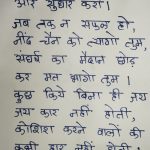 और सुधार करो।
जब तक न सफल हो,
नींद चैन को त्यागो तुम,
संघर्ष का मैदान छोड़
कर मत भागो तुम।
कुछ किये बिना ही जय
जय कार नहीं होती,
कोशिश करने वालों की
कभी हार नहीं होती।